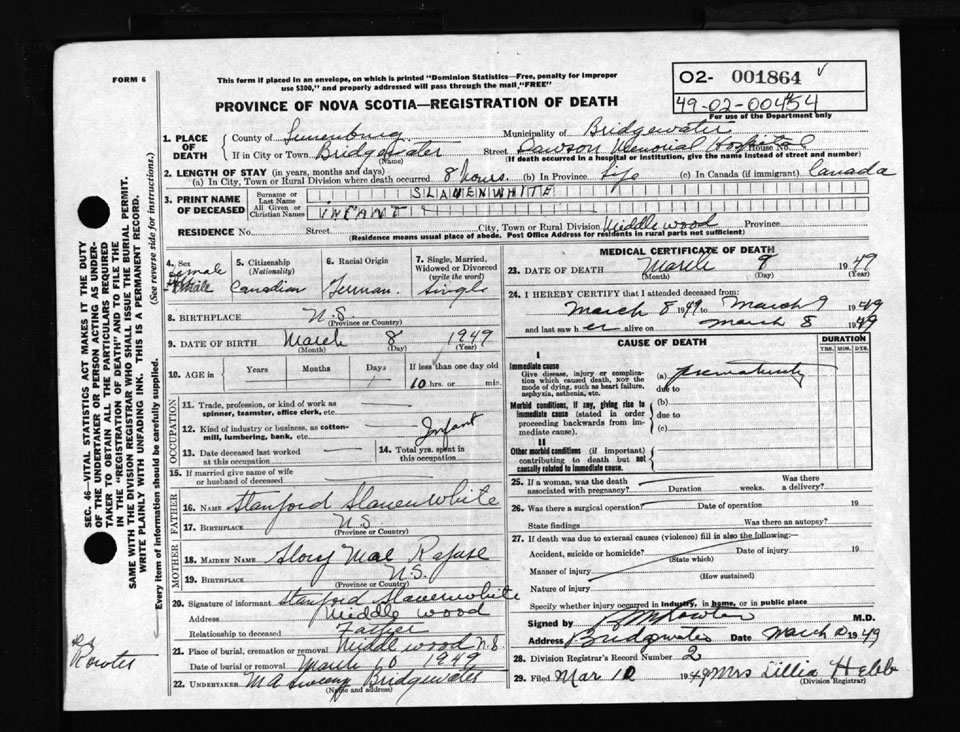 FORM 6
This form if placed in an envelope, on which is printed "Dominion Statistics—Free, penalty for improper
use $300," and properly addressed will pass through the mail, "FREE"
O2- 001864 √
49-02-00454
For use of the Department only
PROVINCE OF NOVA SCOTIA—REGISTRATION OF DEATH
1. PLACE OF DEATH
County of Lunenburg Municipality of Bridgewater
If in City or Town Bridgewater (Name) Street Dawson Memorial Hospital House No.
(If death occurred in a hospital or institution, give the name instead of street and number)
2. LENGTH OF STAY (in years, months and days)
(a) In City, Town or Rural Division where death occurred 8 hours. (b) In Province Life (c) In Canada (if immigrant) Canada
3. PRINT NAME OF DECEASED
Surname or Last Name SLAUENWHITE
All Given or Christian Names INFANT
RESIDENCE No. Street City, Town or Rural Division Middlewood Province
(Residence means usual place of abode. Post Office Address for residents in rural parts not sufficient)
4. Sex
Female
5. Citizenship (Nationality)
Canadian
6. Racial Origin
German
7. Single, Married, Widowed or Divorced (write the word)
Single
8. BIRTHPLACE N.S.
(Province or Country)
9. DATE OF BIRTH March 8 1949
(Month) (Day) (Year)
10. AGE in Years Months Days If less than one day old
10 hrs. or min.
OCCUPATION
11. Trade, profession, or kind of work as spinner, teamster, office clerk, etc.
12. Kind of industry or business, as cotton-mill, lumbering, bank, etc. Infant
13. Date deceased last worked at this occupation
14. Total yrs. spent in this occupation
15. If married give name of wife or husband of deceased
FATHER
16. NAME Stanford Slauenwhite
17. BIRTHPLACE N.S.
(Province or Country)
MOTHER
18. MAIDEN NAME Glory Mae Rafuse
19. BIRTHPLACE N.S.
(Province or Country)
20. Signature of informant Stanford Slauenwhite
Address Middle wood
Relationship to deceased Father
21. Place of burial, cremation or removal Middle wood N.S.
Date of burial or removal March 10 1949
22. UNDERTAKER M A Sweeny Bridgewater
(Name and address)
MEDICAL CERTIFICATE OF DEATH
23. DATE OF DEATH March 9 1949
(Month) (Day) (Year)
24. I HEREBY CERTIFY that I attended deceased from:
March 8 1949 to March 9 1949
and last saw her alive on March 8 1949
CAUSE OF DEATH
DURATION
YRS. MOS. DYS.
I
Immediate cause
Give disease, injury or complication which caused death, NOT the mode of dying, such as heart failure, asphyxia, asthenia, etc.
(a) Prematurity
due to
Morbid conditions, if any, giving rise to immediate cause (stated in order proceeding backwards from immediate cause).
(b)
due to
(c)
II
Other morbid conditions (if important) contributing to death but not causally related to immediate cause.
25. If a woman, was the death associated with pregnancy? Duration weeks. Was there a delivery?
26. Was there a surgical operation? Date of operation 19
State findings Was there an autopsy?
27. If death was due to external causes (violence) fill in also the following:—
Accident, suicide or homicide? Date of injury 19
(State which)
Manner of injury
(How sustained)
Nature of injury
Specify whether injury occurred in industry, in home, or in public place
Signed by Rowter M.D.
Address Bridgewater Date March 10 1949
28. Division Registrar's Record Number 2
29. Filed Mar 10 1949 Mrs Lillia Hebb
(Division Registrar)
SEC. 46—VITAL STATISTICS ACT MAKES IT THE DUTY
OF THE UNDERTAKER OR PERSON ACTING AS UNDER-
TAKER TO OBTAIN ALL THE PARTICULARS REQUIRED
IN THE "REGISTRATION OF DEATH" AND TO FILE THE
SAME WITH THE DIVISION REGISTRAR WHO SHALL ISSUE THE BURIAL PERMIT.
WRITE PLAINLY WITH UNFADING INK. THIS IS A PERMANENT RECORD.
Every item of information should be carefully supplied. (See reverse side for instructions.)
Rowter